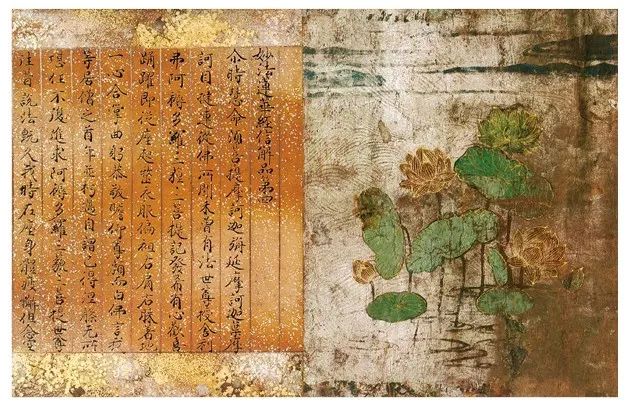 妙法蓮華經信解品第四
尒時慧命湏菩提摩訶迦旃延摩訶迦葉摩
訶目揵連從佛所聞未曾有法世尊授舍利
弗阿耨多羅三藐三菩提記發希有心歡喜
踊躍即從座起整衣服偏袒右肩右膝著地
一心合掌曲躬恭敬瞻仰尊顏而白佛言我
等居僧之首年並朽邁自謂已得涅槃無所
堪任不復進求阿耨多羅三藐三菩提世尊
往昔說法既久我時在座身體疲懈但念空